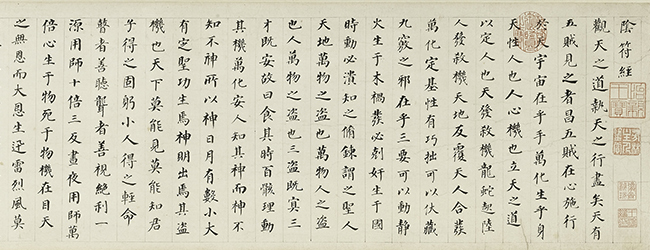 陰符經
觀天之道執天之行盡矣天有
五賊見之者昌五賊在心施行
於天宇宙在乎手萬化生乎身
天性人也人心機也立天之道
以定人也天發殺機龍蛇起陸
人發殺機天地反覆天人合發
萬化定基性有巧拙可以伏藏
九竅之邪在乎三要可以動靜
火生于木禍發必剋奸生于國
時動必潰知之脩鍊謂之聖人
天地萬物之盗也萬物人之盗
也人萬物之盗也三盗既宜三
才既安故曰食其時百骸理動
其機萬化安人知其神而神不
知不神所以神日月有數小大
有定聖功生焉神明出焉其盗
機也天下莫能見莫能知君
子得之固躬小人得之輕命
瞽者善聽聾者善視絶利一
源用師十倍三反晝夜用師萬
倍心生于物死于物機在目天
之無恩而大恩生迅雷烈風莫